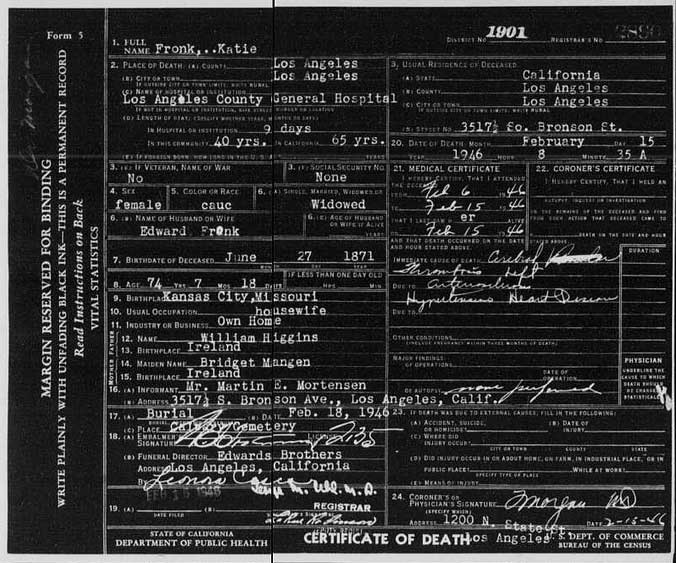 Form 5
DISTRICT NO. 1901 REGISTRAR'S NO.
MARGIN RESERVED FOR BINDING
WRITE PLAINLY WITH UNFADING BLACK INK—THIS IS A PERMANENT RECORD
Read Instructions on Back
VITAL STATISTICS
1. FULL NAME Fronk,..Katie
2. PLACE OF DEATH: (A) COUNTY Los Angeles
(B) CITY OR TOWN Los Angeles
IF OUTSIDE CITY OR TOWN LIMITS, WRITE RURAL
(C) NAME OF HOSPITAL OR INSTITUTION
Los Angeles County General Hospital
(D) LENGTH OF STAY:
IN HOSPITAL OR INSTITUTION 9 days
IN THIS COMMUNITY 40 yrs. IN CALIFORNIA 65 yrs.
3. USUAL RESIDENCE OF DECEASED
(A) STATE California
(B) COUNTY Los Angeles
(C) CITY OR TOWN Los Angeles
(D) STREET NO. 3517½ So. Bronson St.
3. (F) IF VETERAN, NAME OF WAR No
3. SOCIAL SECURITY NO. None
4. SEX female
5. COLOR OR RACE cauc
6. (A) SINGLE, MARRIED, WIDOWED OR Widowed
6. (B) NAME OF HUSBAND OR WIFE Edward Fronk
6. (C) AGE OF HUSBAND OR WIFE IF ALIVE YEARS
7. BIRTHDATE OF DECEASED June 27 1871
8. AGE 74 YRS 7 MOS 18 DAYS
IF LESS THAN ONE DAY OLD
HRS. MIN.
9. BIRTHPLACE Kansas City, Missouri
10. USUAL OCCUPATION housewife
11. INDUSTRY OR BUSINESS Own Home
12. NAME William Higgins
13. BIRTHPLACE Ireland
14. MAIDEN NAME Bridget Mangen
15. BIRTHPLACE Ireland
MOTHER FATHER
16. (A) INFORMANT Mr. Martin E. Mortensen
(B) ADDRESS 3517½ S. Bronson Ave., Los Angeles, Calif.
17. (A) Burial (B) DATE Feb. 18, 1946
(C) PLACE Calvary Cemetery
18. (A) EMBALMER'S SIGNATURE
(B) FUNERAL DIRECTOR Edwards Brothers
ADDRESS Los Angeles, California
By
19. (A) DATE FILED
REGISTRAR
20. DATE OF DEATH: MONTH February DAY 15
YEAR 1946 HOUR 8 MINUTE 35 A
21. MEDICAL CERTIFICATE
I HEREBY CERTIFY, THAT I ATTENDED
THE DECEASED
Feb 6 1946
TO Feb 15 1946
THAT I LAST SAW H er ALIVE
Feb 15 1946
AND THAT DEATH OCCURRED ON THE DATE AND HOUR STATED ABOVE.
IMMEDIATE CAUSE OF DEATH Cerebral
Thrombosis left
DUE TO
DUE TO Hypertensive Heart Disease
DURATION
OTHER CONDITIONS
(INCLUDE PREGNANCY WITHIN THREE MONTHS OF DEATH)
MAJOR FINDINGS:
OF OPERATION
DATE OF OPERATION
OF AUTOPSY none performed
PHYSICIAN
UNDERLINE THE CAUSE TO WHICH DEATH SHOULD BE CHARGED STATISTICALLY
22. CORONER'S CERTIFICATE
I HEREBY CERTIFY, THAT I HELD AN
AUTOPSY, INQUEST OR INVESTIGATION
ON THE REMAINS OF THE DECEASED AND FIND FROM SUCH ACTION THAT DECEASED CAME TO
DEATH ON THE DATE AND HOUR
23. IF DEATH WAS DUE TO EXTERNAL CAUSES, FILL IN THE FOLLOWING:
(A) ACCIDENT, SUICIDE, OR HOMICIDE?
(B) DATE OF INJURY
(C) WHERE DID INJURY OCCUR?
CITY OR TOWN COUNTY STATE
(D) DID INJURY OCCUR IN OR ABOUT HOME, ON FARM, IN INDUSTRIAL PLACE, OR IN PUBLIC PLACE? WHILE AT WORK?
SPECIFY TYPE OF PLACE
(E) MEANS OF INJURY
24. CORONER'S OR PHYSICIAN'S SIGNATURE Morgan MD
(SPECIFY WHICH)
ADDRESS 1200 N. State St. DATE 2-15-46
Los Angeles
STATE OF CALIFORNIA
DEPARTMENT OF PUBLIC HEALTH
CERTIFICATE OF DEATH
U. S. DEPT. OF COMMERCE
BUREAU OF THE CENSUS